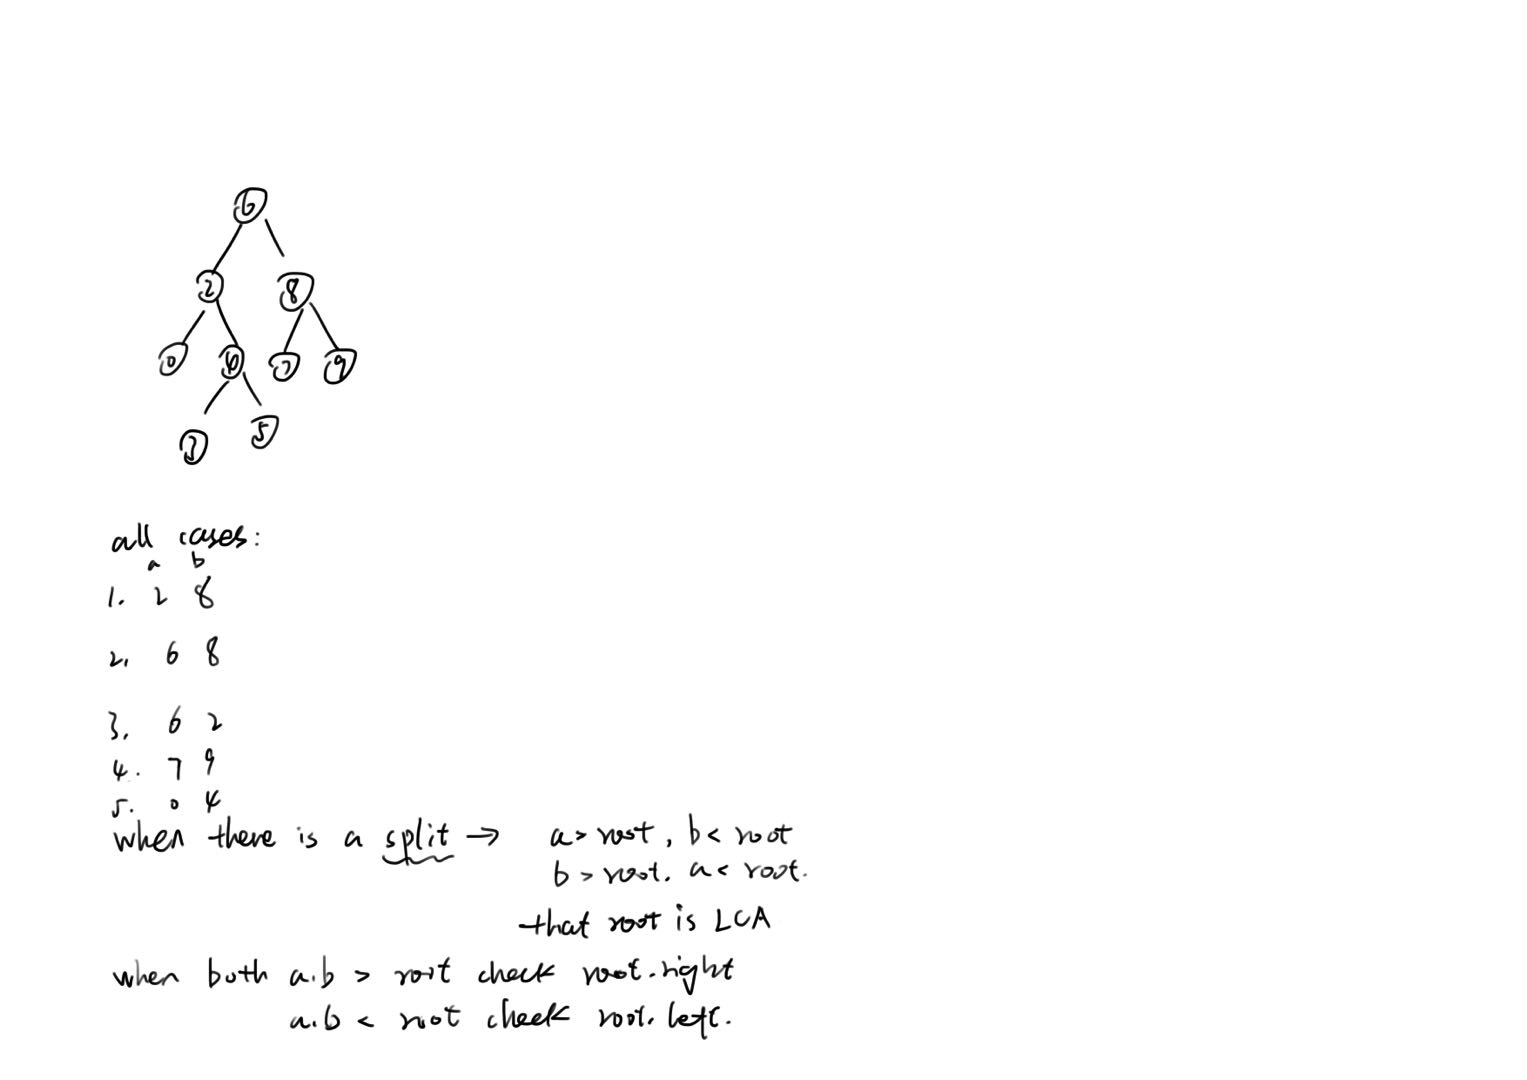 6
2 8
0 4 7 9
3 5
all cases:
a b
1. 2 8
2. 6 8
3. 6 2
4. 7 9
5. 0 4
when there is a split → a > root, b < root
b > root. a < root.
that root is LCA
when both a.b > root check root.right
a.b < root check root.left.